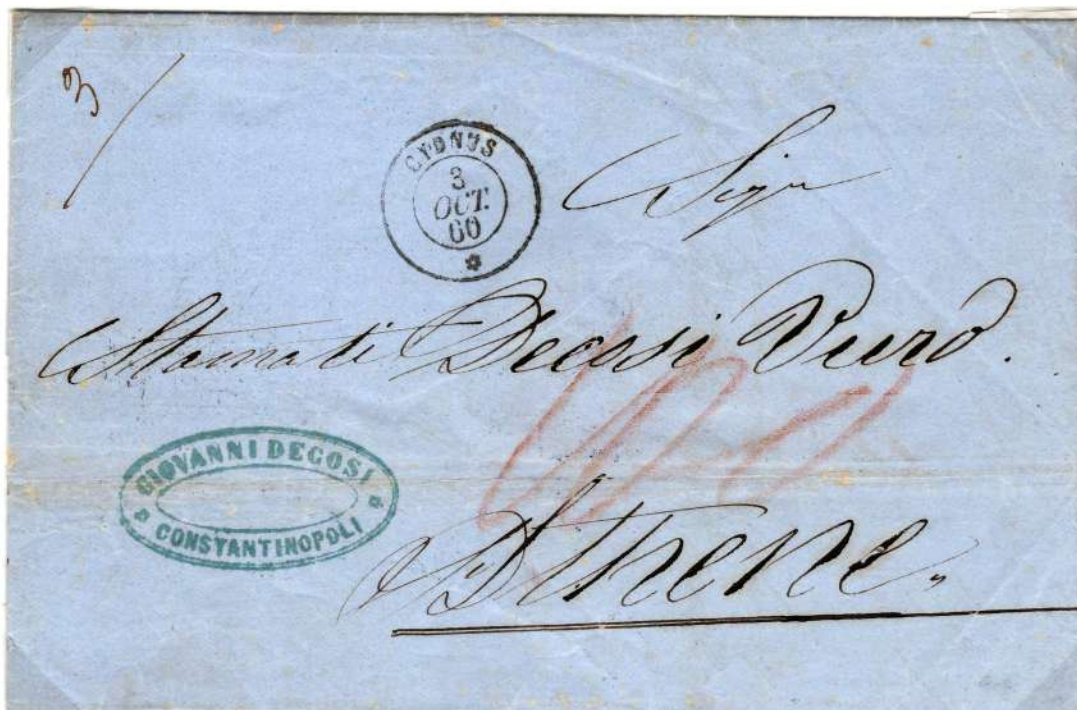 3
CYDNUS
3
OCT.
60
Sigr
Stamati Decosi Vuro.
GIOVANNI DECOSI
CONSTANTINOPOLI
Athene.